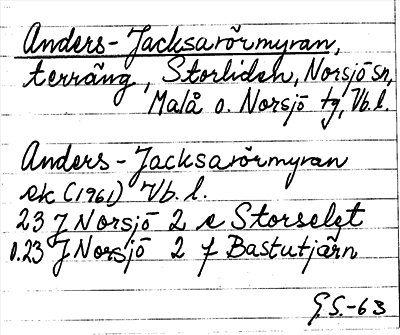 Anders-Jacksarörmyran,
terräng, Storliden, Norsjö sn,
Malå o. Norsjö tg, Vb. l.
Anders-Jacksarörmyran
ek (1961) Vb. l.
23 J Norsjö 2 e Storselet
o.23 J Norsjö 2 f Bastutjärn
G.S.-63